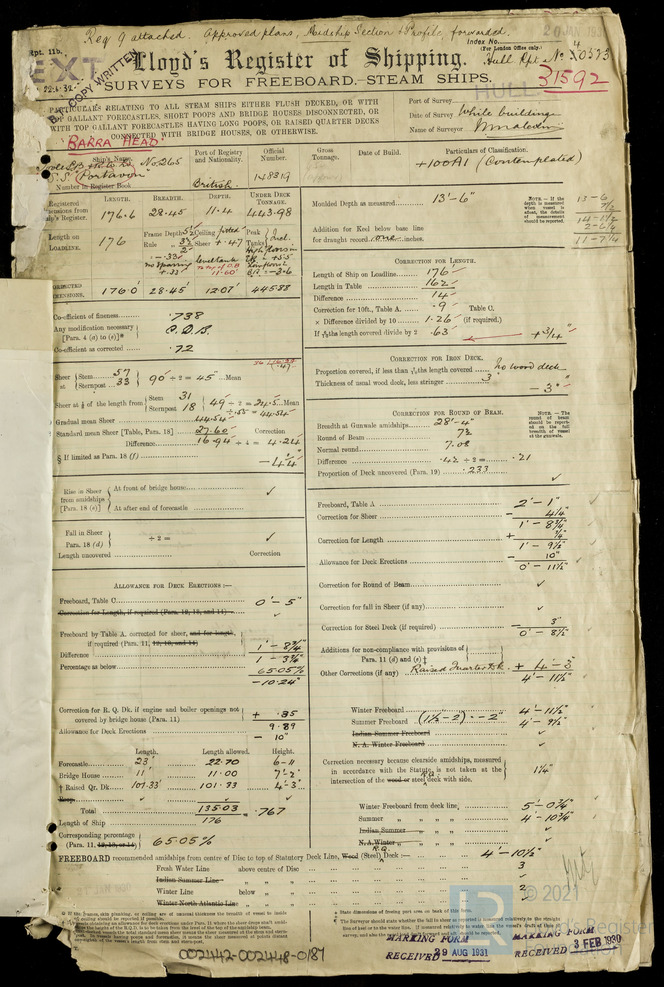 Req 9 attached. Approved plans, Midship Section & Profile, forwarded.
20 JAN 193
Rpt. 11b.
Index No.
(For London Office only.)
Lloyd's Register of Shipping.
Hull Rpt No 40573
HULL
31592
SURVEYS FOR FREEBOARD.—STEAM SHIPS.
COPY WRITTEN
PARTICULARS RELATING TO ALL STEAM SHIPS EITHER FLUSH DECKED, OR WITH
TOP GALLANT FORECASTLES, SHORT POOPS AND BRIDGE HOUSES DISCONNECTED, OR
WITH TOP GALLANT FORECASTLES HAVING LONG POOPS, OR RAISED QUARTER DECKS
CONNECTED WITH BRIDGE HOUSES, OR OTHERWISE.
Port of Survey
Date of Survey While building
Name of Surveyor
BARRA HEAD
Ship's Name
No. 265
S.S. "Portavon"
Number in Register Book
Port of Registry and Nationality.
British.
Official Number.
148319
Gross Tonnage.
Date of Build.
Particulars of Classification.
+100A1 (Contemplated)
Registered Dimensions from Ship's Register.
LENGTH. BREADTH. DEPTH. UNDER DECK TONNAGE.
176.6 28.45 11.4 443.98
Length on LOADLINE.
176
Frame Depth
Rule
Ceiling fitted
Sheer + .47
Peak Tanks
CORRECTED DIMENSIONS.
176.0 28.45 12.07 445.88
Moulded Depth as measured 13'-6"
Addition for Keel below base line
for draught record one inches.
NOTE.—If the depth is measured when vessel is afloat, the details of measurement should be reported.
Co-efficient of fineness .738
Any modification necessary
[Para. 4 (a) to (e)]*
Co-efficient as corrected .72
CORRECTION FOR LENGTH.
Length of Ship on Loadline 176
Length in Table 162
Difference 14
Correction for 10ft., Table A. .9 Table C.
× Difference divided by 10 1.26 (if required.)
If 6/10ths length covered divide by 2 .63
+ 3/4"
Sheer at Stem 57
Sternpost 33
90 ÷ 2 = 45" Mean
Sheer at 1/8 of the length from Stem 31
Sternpost 18
49 ÷ 2 = 24.5 Mean
Gradual mean Sheer 44.54
Standard mean Sheer [Table, Para. 18] 27.60 Correction
Difference 16.94 ÷ 4 = 4.24
§ If limited as Para. 18 (f)
CORRECTION FOR IRON DECK.
Proportion covered, if less than 7/10ths length covered no wood deck
Thickness of usual wood deck, less stringer 3
- 3"
CORRECTION FOR ROUND OF BEAM.
Breadth at Gunwale amidships 28'-4"
Round of Beam 7 1/2
Normal round 7.08
Difference .42 ÷ 2 = .21
Proportion of Deck uncovered (Para. 19) .233
NOTE.—The round of beam should be reported on the full breadth of vessel at the gunwale.
Rise in Sheer from amidships [Para. 18 (e)]
At front of bridge house
At after end of forecastle
Fall in Sheer
Para. 18 (d)
÷ 2 =
Length uncovered Correction
ALLOWANCE FOR DECK ERECTIONS:—
Freeboard, Table C. 0'-5"
Correction for Length, if required (Para. 12, 13, and 14)
Freeboard by Table A, corrected for sheer, and for length,
if required (Para. 11, 12, 13, and 14) 1'-8 3/4"
Difference 1'-3 3/4"
Percentage as below 65.05%
- 10.24"
Correction for R. Q. Dk. if engine and boiler openings not
covered by bridge house (Para. 11) + .35
9.89
Allowance for Deck Erections - 10"
Length. Length allowed. Height.
Forecastle 23' 22.70 6-11
Bridge House 11' 11.00 7'-2"
† Raised Qr. Dk. 101.33' 101.33 4'-3"
Poop
Total 135.03
Length of Ship 176 = .767
Corresponding percentage
(Para. 11, 12, 13, or 14) 65.05%
Freeboard, Table A 2'-1"
Correction for Sheer - 4 1/4"
1'-8 3/4"
Correction for Length + 3/4"
1'-9 1/2"
Allowance for Deck Erections - 10"
0'-11 1/2"
Correction for Round of Beam
Correction for fall in Sheer (if any)
Correction for Steel Deck (if required) - 3"
0'-8 1/2"
Additions for non-compliance with provisions of
Para. 11 (d) and (e) ‡
Other Corrections (if any) Raised Quarter Dk. + 4'-3"
4'-11 1/2"
Winter Freeboard 4'-11 1/2"
Summer Freeboard (1 1/2 - 2) - 2" 4'-9 1/2"
Indian Summer Freeboard
N. A. Winter Freeboard
Correction necessary because clearside amidships, measured
in accordance with the Statute, is not taken at the
intersection of the wood or steel R.Q. deck with side. 1 1/4"
Winter Freeboard from deck line 5'-0 3/4"
Summer " " " 4'-10 3/4"
Indian Summer " "
N.A. Winter " "
FREEBOARD recommended amidships from centre of Disc to top of Statutory Deck Line, Wood (Steel) R.Q. Deck:— 4'-10 1/2"
Fresh Water Line above centre of Disc 3
Indian Summer Line " "
Winter Line below " 2
Winter North Atlantic Line " "
© 2021
LR
MARKING FORM
RECEIVED 29 AUG 1931
MARKING FORM
RECEIVED 3 FEB 1930
002442-002448-0187